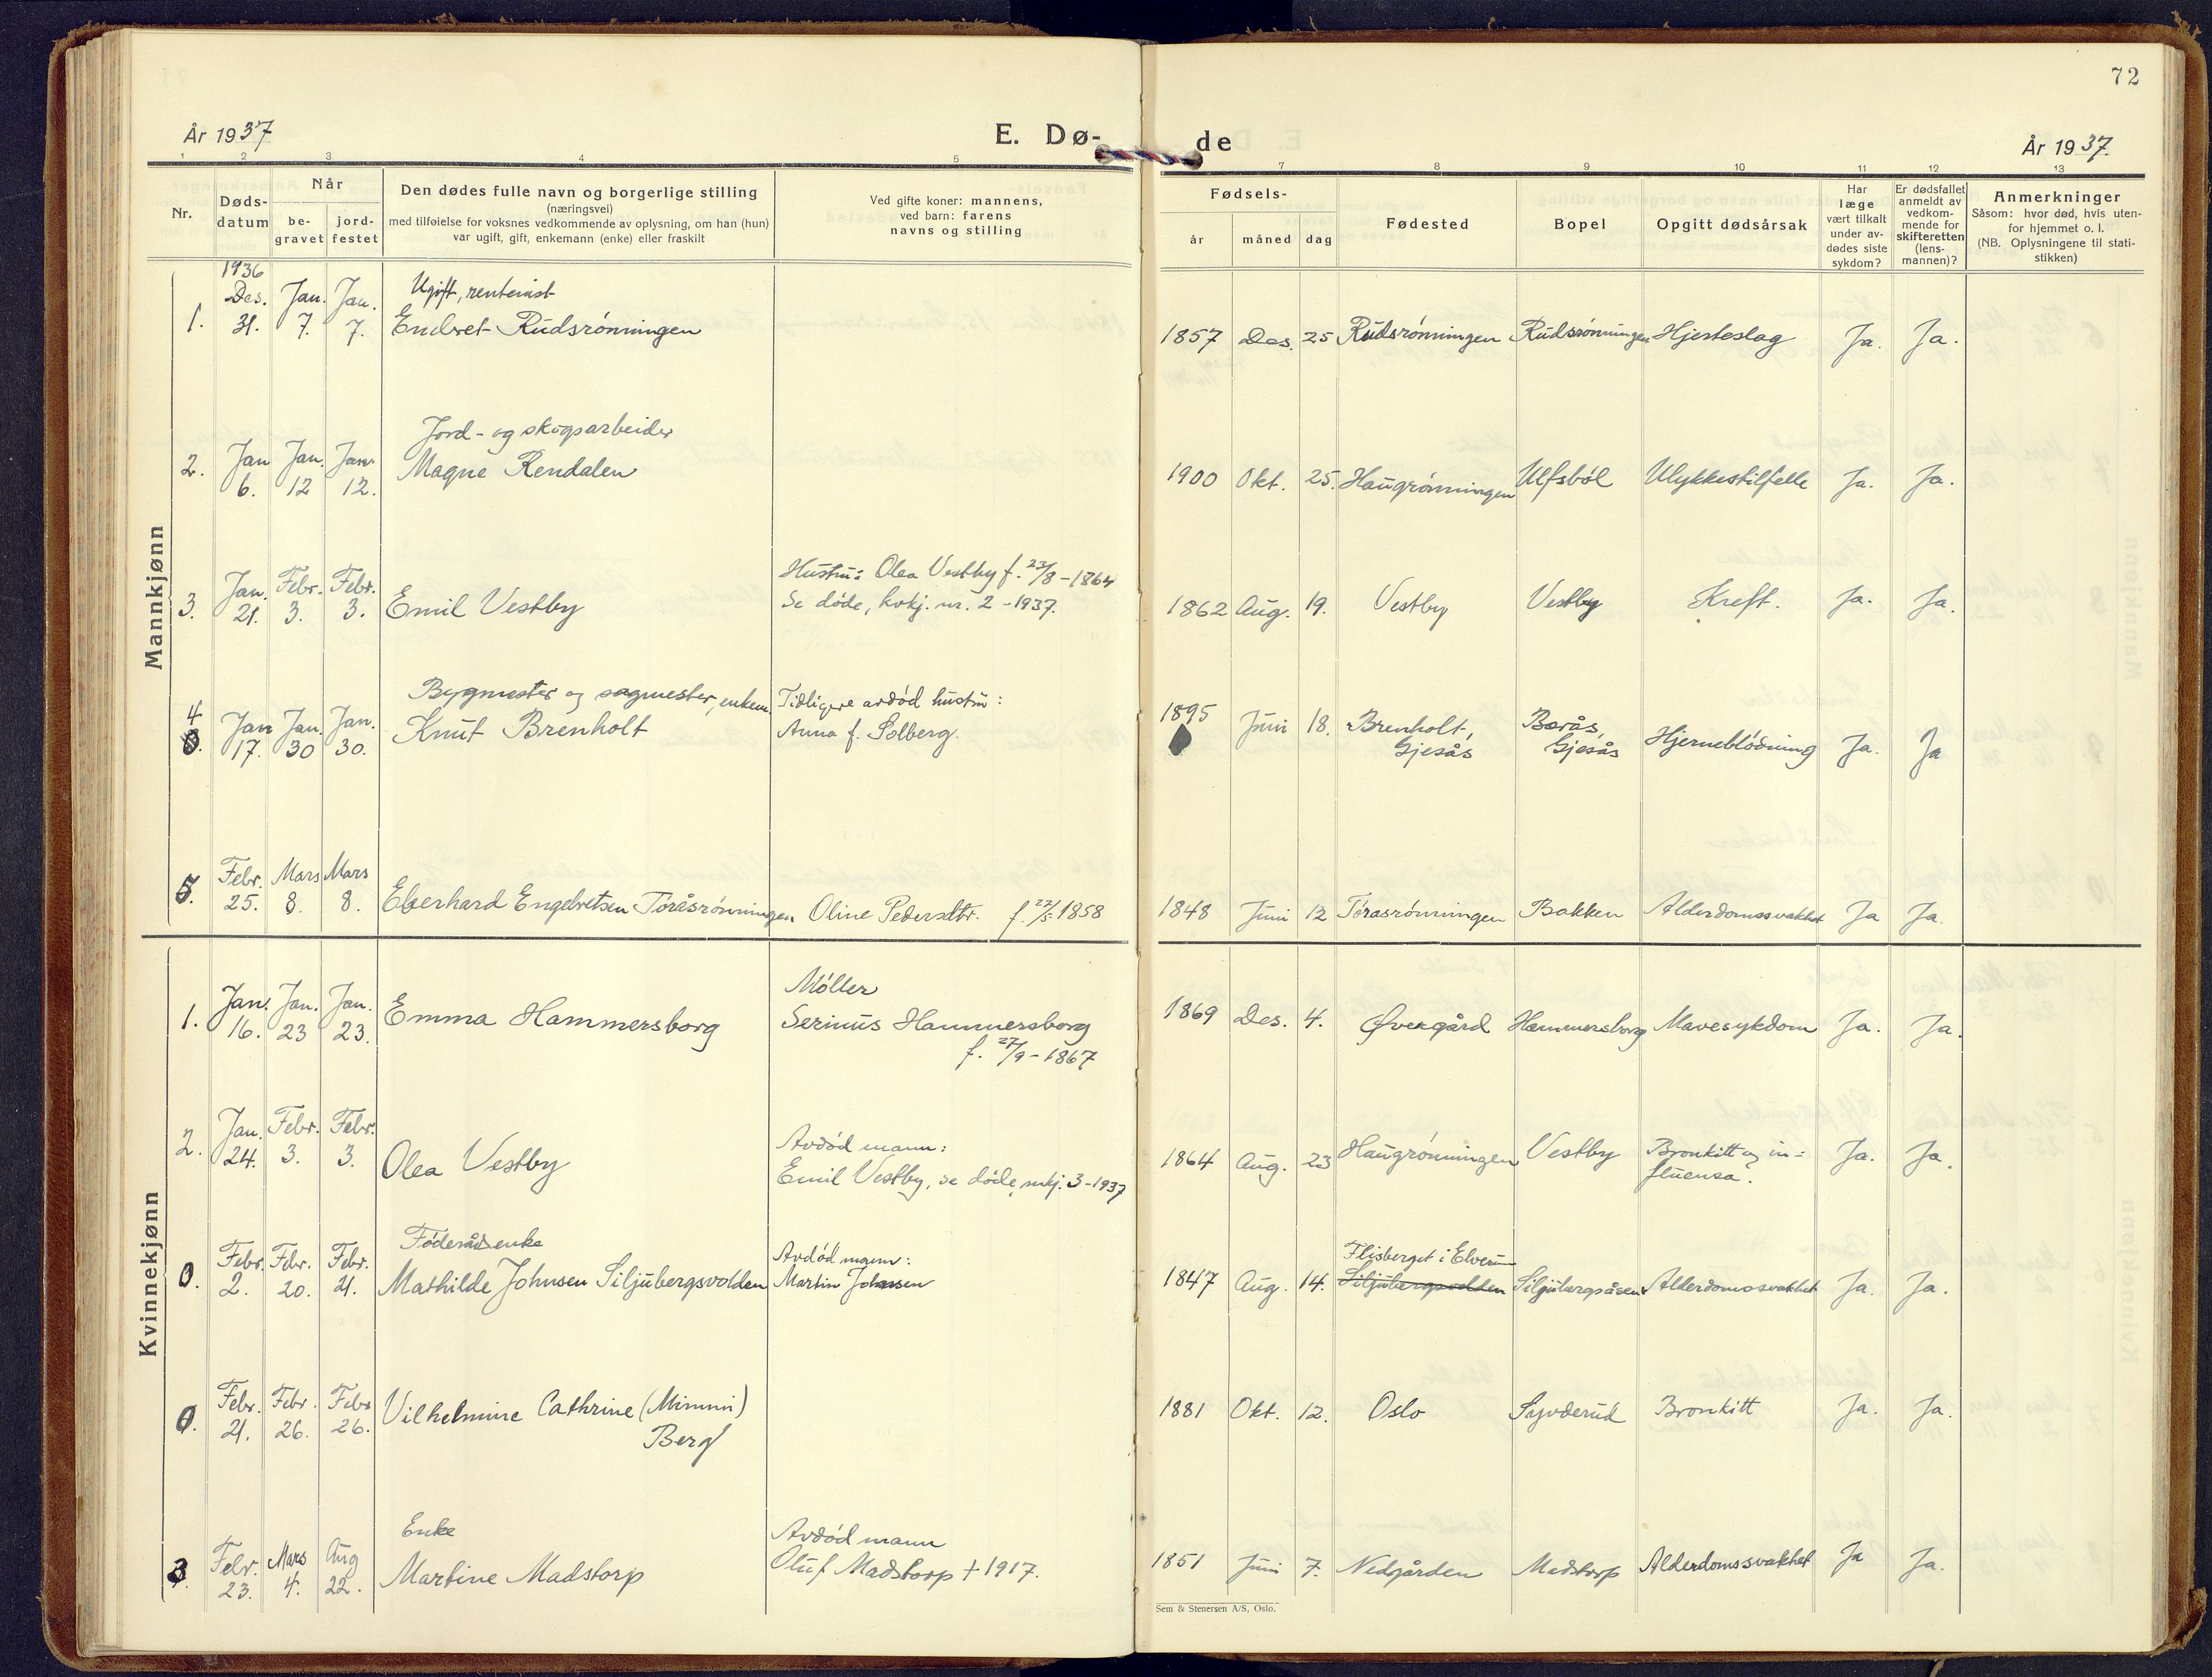 72
År 1937
E. Dø-
de
År 1937.
1 2 3 4 5 7 8 9 10 11 12 13
Nr.
Døds-
datum
Når
be-
gravet
jord-
festet
Den dødes fulle navn og borgerlige stilling
(næringsvei)
med tilføielse for voksnes vedkommende av oplysning, om han (hun)
var ugift, gift, enkemann (enke) eller fraskilt
Ved gifte koner: mannens,
ved barn: farens
navns og stilling
Fødsels-
år måned dag
Fødested
Bopel
Opgitt dødsårsak
Har
læge
vært tilkalt
under av-
dødes siste
sykdom?
Er dødsfallet
anmeldt av
vedkom-
mende for
skifteretten
(lens-
mannen)?
Anmerkninger
Såsom: hvor død, hvis uten-
for hjemmet o. l.
(NB. Oplysningene til stati-
stikken)
Mannkjønn
1936
Des. Jan. Jan. Ugift, rentenist
1. 31. 7. 7. Endret Rudsrönningen 1857 Des. 25 Rudsrönningen Rudsrönningen Hjerteslag Ja. Ja.
Jord- og skogsarbeider
2. Jan Jan. Jan. Magne Rendalen 1900 Okt. 25. Haugrönningen Ulfsböl Ulykkestilfelle Ja. Ja.
6. 12 12.
Hustru: Olea Vestby f. 23/8 - 1864
3. Jan. Febr. Febr. Emil Vestby Se döde, kvkj. nr. 2 - 1937. 1862 Aug. 19. Vestby Vestby Kreft. Ja. Ja.
21. 3. 3.
Bygmester og sagmester, enkem. Tidligere avdöd hustru:
4 Jan Jan. Jan. Knut Brenholt Anna f. Solberg. 1895 Juni 18. Brenholt, Berås, Hjerneblödning Ja. Ja
17. 30 30. Gjesås Gjesås
Febr. Mars Mars
5. 25. 8. 8. Eberhard Engebretsen Töråsrönningen Oline Pedersdtr. f. 22/5 1858 1848 Juni 12 Törasrönningen Bakken Alderdomssvakhet Ja Ja.
Kvinnekjønn
Möller
1. Jan. Jan. Jan. Emma Hammersborg Serinus Hammersborg 1869 Des. 4. Øvergård Hammersborg Mavesykdom Ja. Ja.
16. 23 23. f. 27/9 - 1867
2. Jan. Febr. Febr. Avdöd mann:
24. 3. 3. Olea Vestby Emil Vestby, se döde, mkj. 3 - 1937 1864 Aug. 23 Haugrönningen Vestby Bronkitt og in-
fluensa. Ja. Ja.
Föderådsenke Avdöd mann: Flisberget i Elverum
0. Febr. Febr. Febr. Mathilde Johnsen Siljubergsvolden Martin Johnsen 1847 Aug. 14. Siljubergsvolden Siljubergsåsen Alderdomssvakhet Ja. Ja.
2. 20. 21.
0. Febr. Febr. Febr Vilhelmine Cathrine (Mimmi) 1881 Okt. 12. Oslo Bronkitt Ja. Ja.
21. 26. 26. Berg
Enke Avdöd mann
3. Febr. Mars Aug Martine Madstorp Oluf Madstorp + 1917. 1851 Juni 7. Nedgården Madstorp Alderdomssvakhet Ja Ja.
23. 4. 22.
Sem & Stenersen A/S, Oslo.